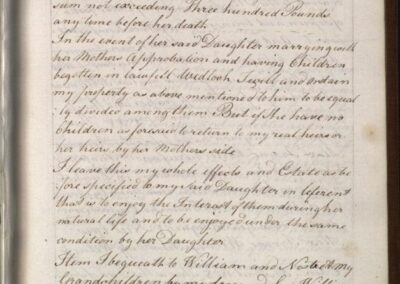 sum not exceeding Three hundred Pounds
any time before her death
In the event of her said Daughter marrying with
her Mothers Approbation and having Children
begotten in lawfull Wedlock I will and ordain
my property as above mentioned to him to be equal
ly divided among them But if she have no
Children as foresaid to return to my real heirs or
her heirs by her Mothers side
I leave this my whole effects and Estate as be
fore specified to my said Daughter in liferent
that is to enjoy the Interest of them during her
natural life and to be enjoyed under the same
condition by her Daughter
Item I bequeath to William and my
Grandchildren by my